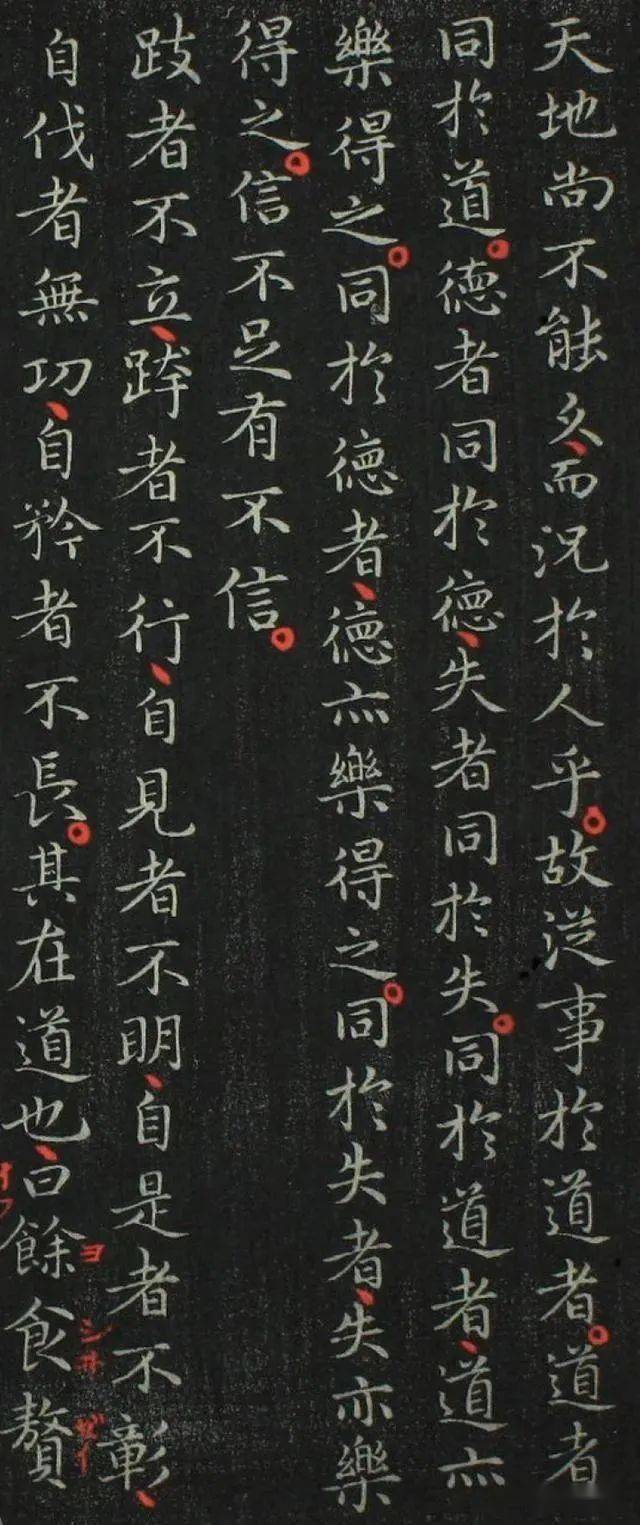 天地尚不能久、而況於人乎。故從事於道者。道者
同於道。德者同於德、失者同於失。同於道者、道亦
樂得之。同於德者、德亦樂得之。同於失者、失亦樂
得之。信不足有不信。
跂者不立、跨者不行、自見者不明、自是者不彰、
自伐者無功、自矜者不長。其在道也、曰餘食贅
イフ
ヨ
シヰ
ゼイ